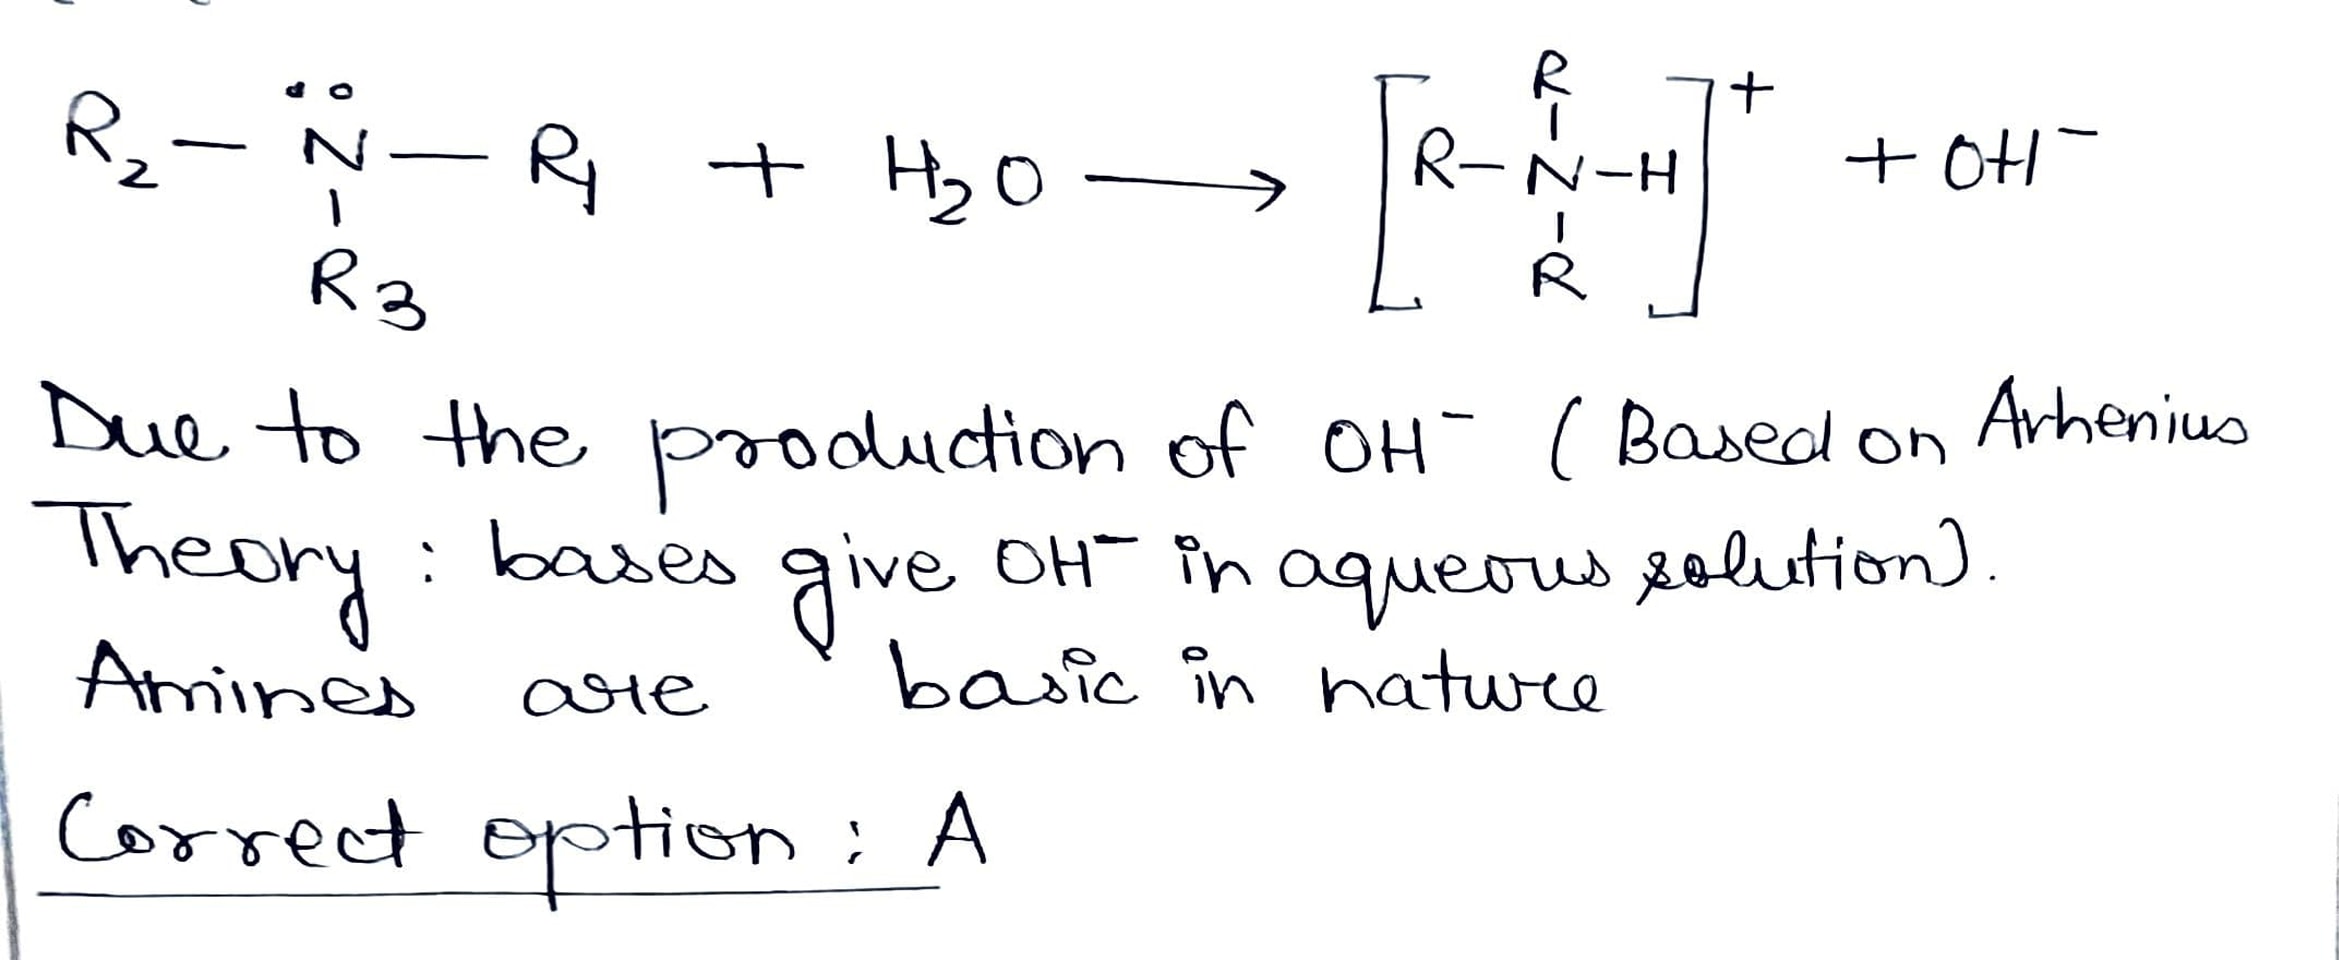 R₂ — N̈ — R₁ + H₂O ⟶ [R–N–H]⁺ + OH⁻
R₃
R
R
Due to the production of OH⁻ ( Based on Arhenius
Theory : bases give OH⁻ in aqueous solution).
Amines are basic in nature
Correct option : A